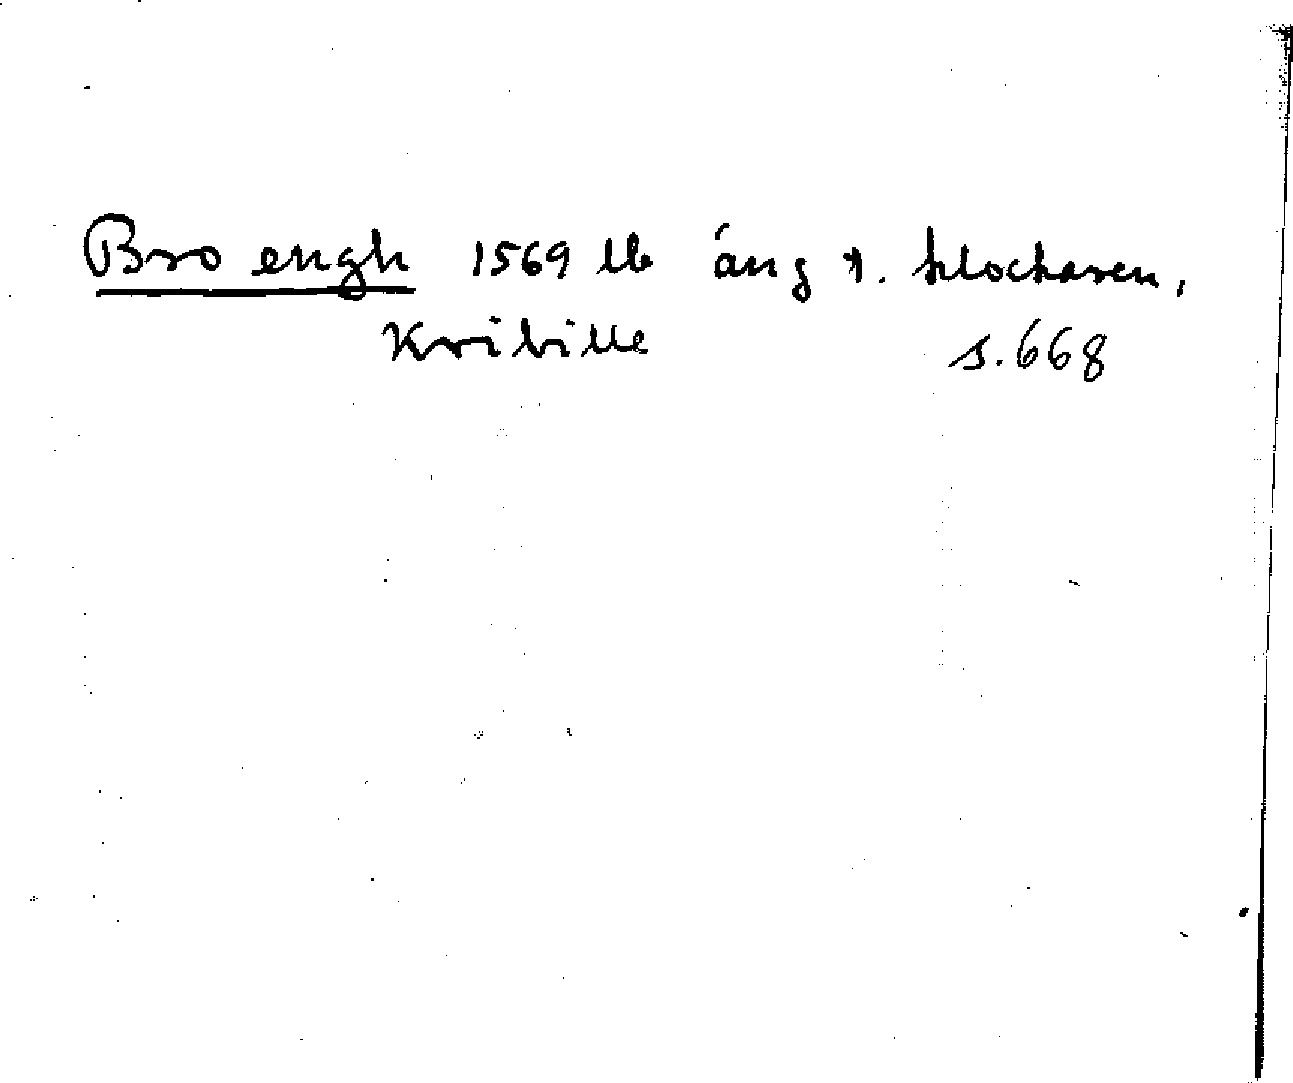 Bro engh 1569 lb äng t. klockaren,
Kvibille s. 668